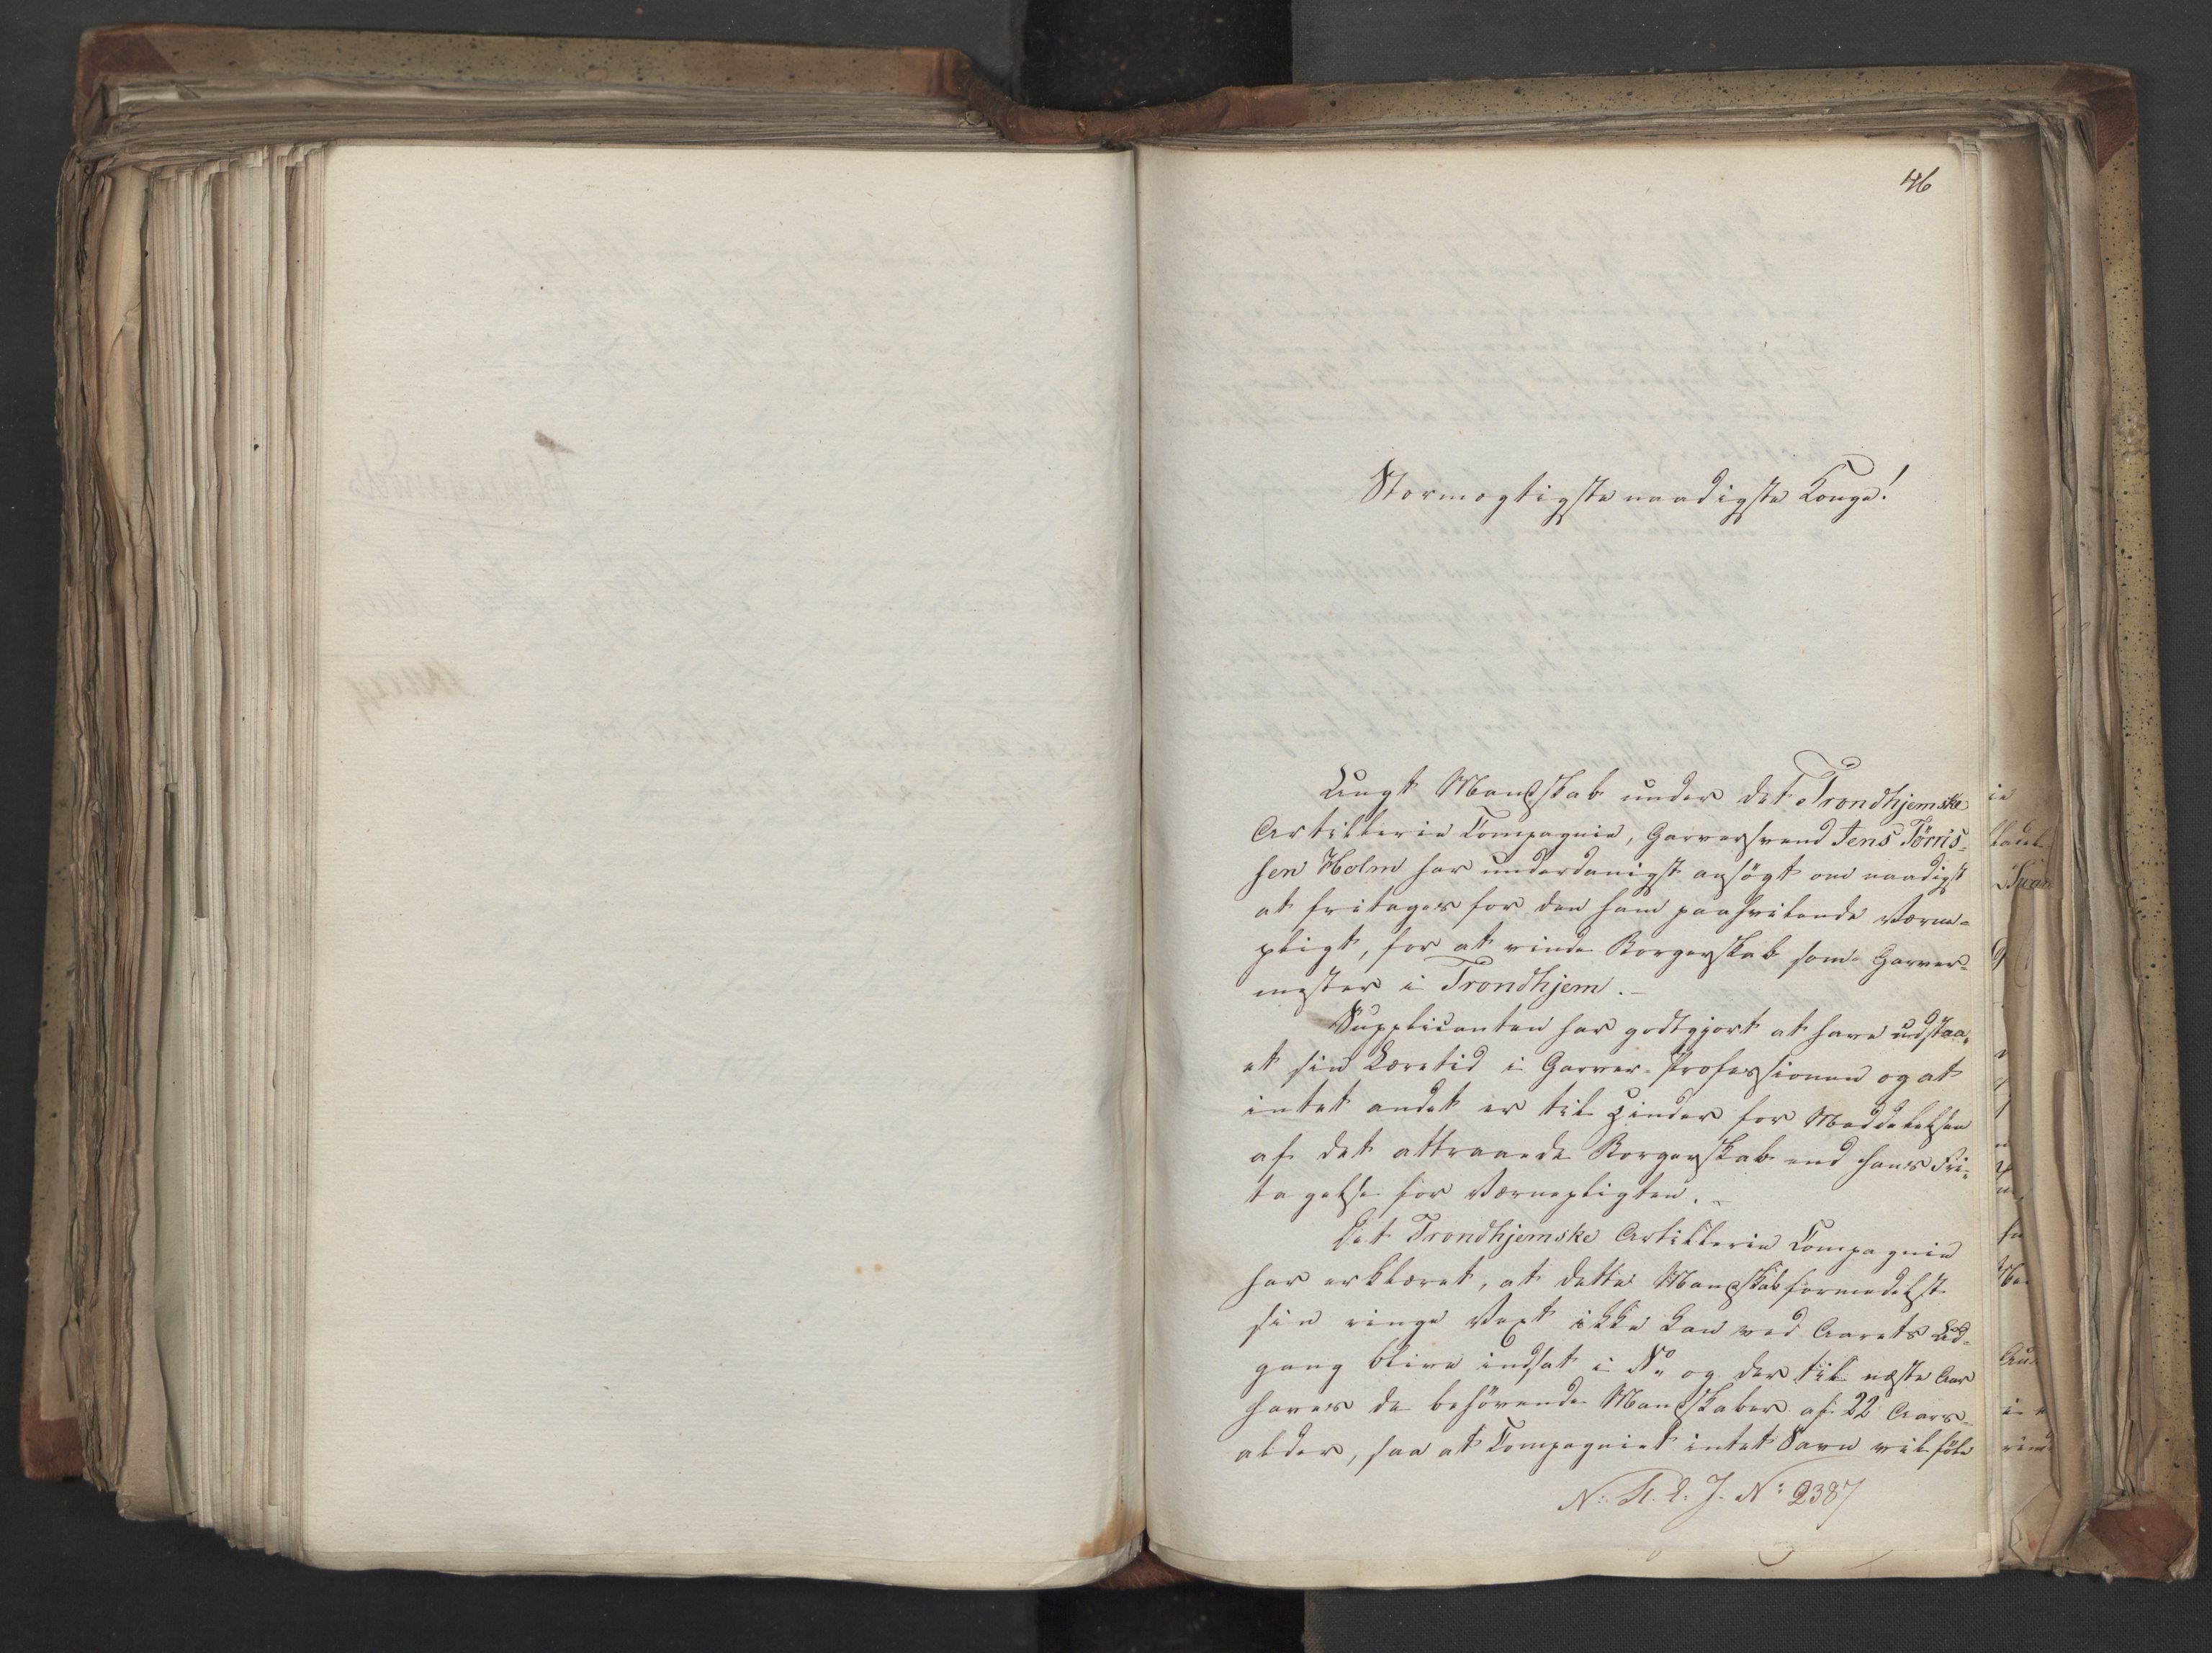 46
Stormægtigste naadigste Konge!
Ungt Mandskab under det Trondhjemske
Artillerie Compagnie, Garversvend Jens Törris-
sen Holm har underdanigst ansögt om naadigst
at fritages for den ham paahvilende Værne-
pligt, for at vinde Borgerskab som Garver-
mester i Trondhjem.-
Supplicanten har godtgjort at have udstaa-
et sin Læretid i Garver-Professionen og at
intet andet er til Hinder for Meddelelsen
af det attraaede Borgerskab end hans Fri-
tagelse for Værnepligten.-
Det Trondhjemske Artillerie Compagnie
har erklæret, at dette Mandskab formedelst
sin ringe Vext ikke kan ved Aarets Ud-
gang blive indsat i No og der til næste Aar
haves de behövende Mandskaber af 22 Aars-
alder, saa at Compagniet intet Savn vil föle
No 2387